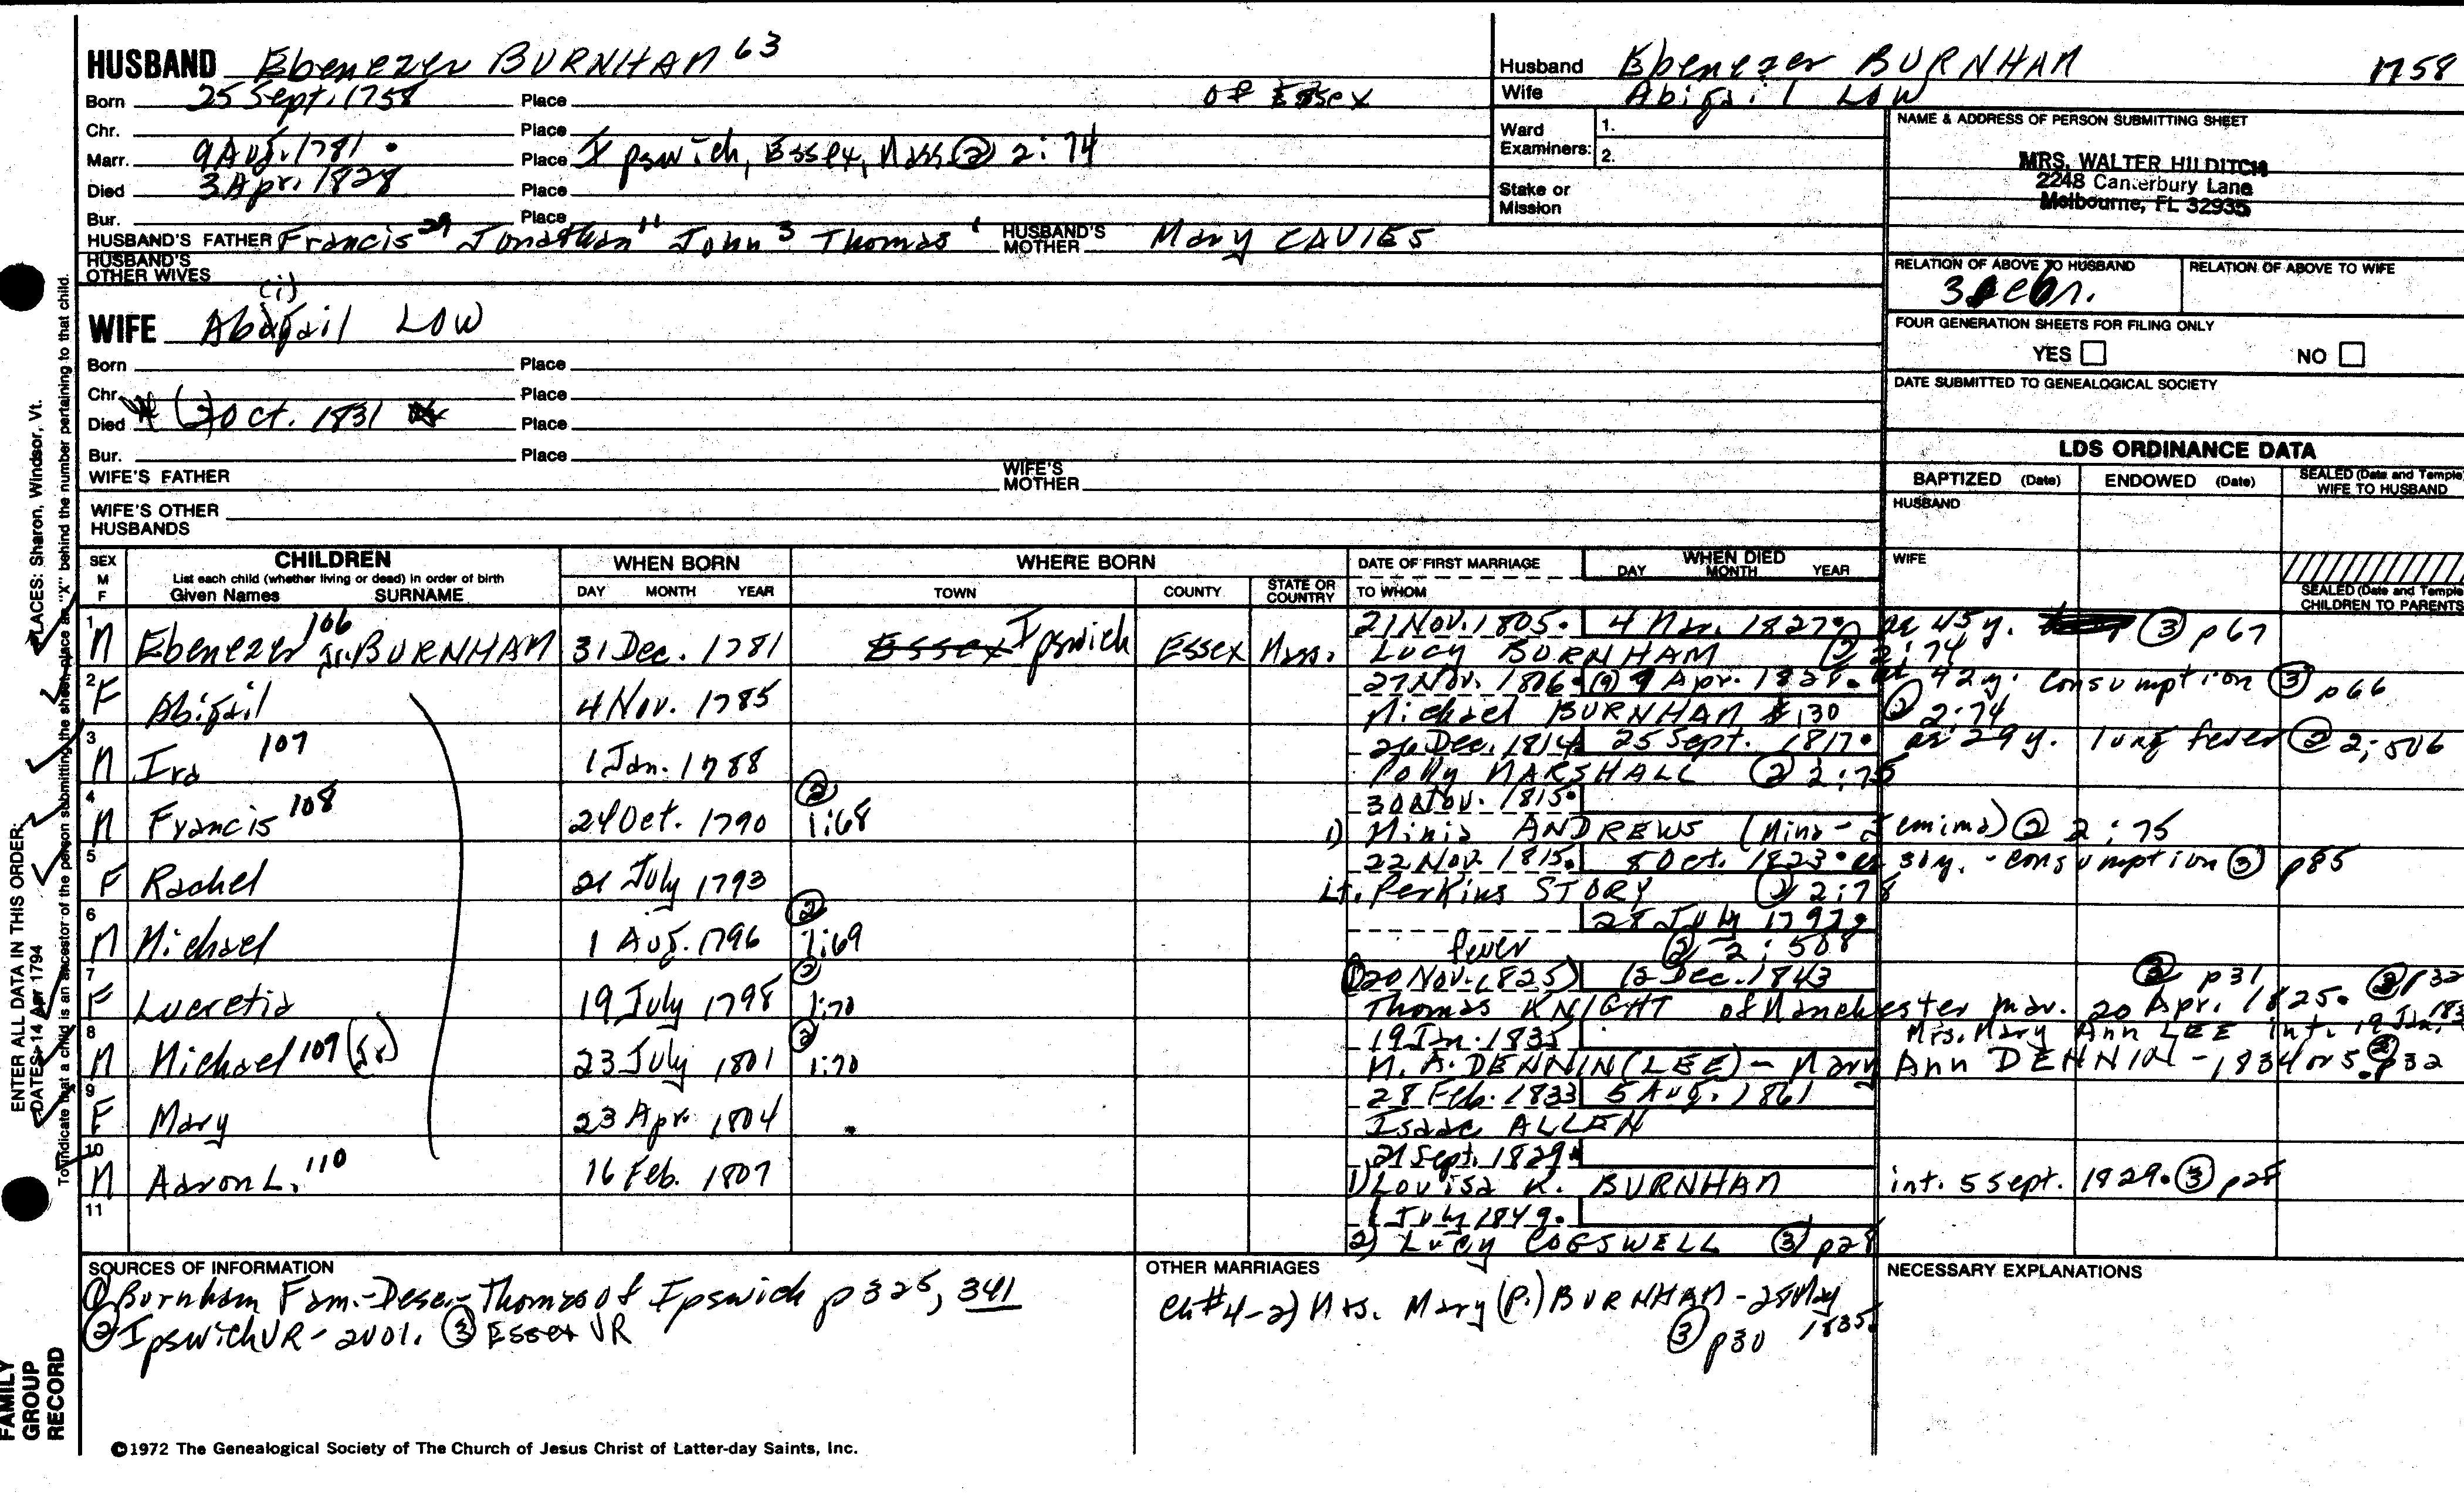 HUSBAND Ebenezer BURNHAM 63
Born 25 Sept. 1758 Place of Essex
Chr. Place
Marr. 9 Aug. 1781 . Place Ipswich, Essex, Mass ② 2:74
Died 3 Apr. 1828 Place
Bur. Place
HUSBAND'S FATHER Francis 29 Jonathan 11 John 3 Thomas 1 HUSBAND'S MOTHER Mary CAVIES
HUSBAND'S OTHER WIVES
(i)
WIFE Abigail LOW
Born Place
Chr. Place
Died (2) Oct. 1831 Place
Bur. Place
WIFE'S FATHER WIFE'S MOTHER
WIFE'S OTHER HUSBANDS
Husband Ebenezer BURNHAM 1758
Wife Abigail LOW
Ward Examiners: 1.
2.
Stake or Mission
NAME & ADDRESS OF PERSON SUBMITTING SHEET
MRS. WALTER HILDITCH
2248 Canterbury Lane
Melbourne, FL 32935
RELATION OF ABOVE TO HUSBAND RELATION OF ABOVE TO WIFE
FOUR GENERATION SHEETS FOR FILING ONLY
YES NO
DATE SUBMITTED TO GENEALOGICAL SOCIETY
LDS ORDINANCE DATA
BAPTIZED (Date) ENDOWED (Date) SEALED (Date and Temple) WIFE TO HUSBAND
HUSBAND
WIFE
SEALED (Date and Temple) CHILDREN TO PARENTS
SEX M F CHILDREN List each child (whether living or dead) in order of birth Given Names SURNAME
WHEN BORN DAY MONTH YEAR
WHERE BORN TOWN COUNTY STATE OR COUNTRY
DATE OF FIRST MARRIAGE TO WHOM
WHEN DIED DAY MONTH YEAR
1 M Ebenezer 106 Jr. BURNHAM 31 Dec. 1781 Essex Ipswich Essex Mass. 21 Nov. 1805. 4 Mar. 1827. ae 45 y. ③ p67
Lucy BURNHAM ② 2:74
2 F Abigail 4 Nov. 1785 27 Nov. 1806. (9) 9 Apr. 1828. ae 42 y. consumption ③ p66
Michael BURNHAM #130 ② 2:74
3 M Ira 107 1 Jan. 1788 26 Dec. 1814 25 Sept. 1817. ae 29 y. lung fever ② 2:506
Polly MARSHALL ② 2:75
4 M Francis 108 24 Oct. 1790 ② 1:68 30 Nov. 1815.
1) Minia ANDREWS (Mina - Jemima) ② 2:75
5 F Rachel 21 July 1793 22 Nov. 1815. 8 Oct. 1823. ae 30y. - consumption ③ p85
Lt. Perkins STORY ② 2:78
6 M Michael 1 Aug. 1796 ② 1:69 28 July 1797.
fever ② 2:508
7 F Lucretia 19 July 1798 ② 1:70 (20 Nov. 1825) 12 Dec. 1843 ③ p31 ③ p32
Thomas KNIGHT of Manchester mar. 20 Apr. 1825.
8 M Michael 109 (Jr) 23 July 1801 ② 1:70 19 Jan. 1835 Mrs. Mary Ann LEE int. 19 Jan. 183
M. A. DENNIN (LEE) - Mary Ann DENNIN - 1834 or 5. ③ p32
9 F Mary 23 Apr. 1804 28 Feb. 1833 5 Aug. 1861
Isaac ALLEN
10 M Aaron L. 110 16 Feb. 1807 21 Sept. 1829
1) Louisa K. BURNHAM int. 5 Sept. 1829. ③ p28
11 1 July 1849.
2) Lucy COGSWELL ③ p28
SOURCES OF INFORMATION
① Burnham Fam.-Desc.-Thomas of Ipswich p325, 341
② Ipswich VR - 2vol. ③ Essex VR
OTHER MARRIAGES
Ch #4 - 2) Mrs. Mary (P.) BURNHAM - 28 May 1835.
③ p30
NECESSARY EXPLANATIONS
©1972 The Genealogical Society of The Church of Jesus Christ of Latter-day Saints, Inc.
FAMILY GROUP RECORD
ENTER ALL DATA IN THIS ORDER:
DATES: 14 Apr 1794
PLACES: Sharon, Windsor, Vt.
To indicate that a child is an ancestor of the person submitting the sheet, place an "X" behind the number pertaining to that child.